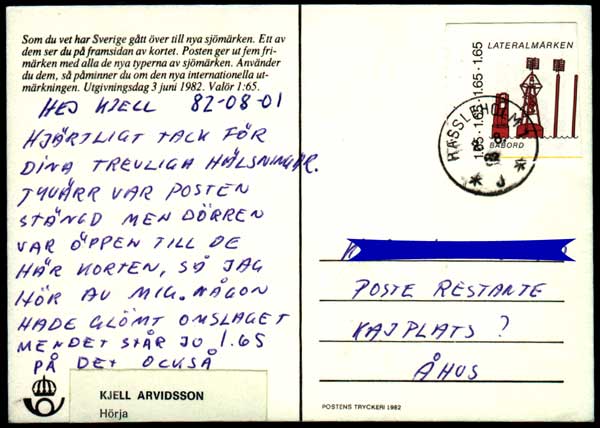 Som du vet har Sverige gått över till nya sjömärken. Ett av
dem ser du på framsidan av kortet. Posten ger ut fem fri-
märken med alla de nya typerna av sjömärken. Använder
du dem, så påminner du om den nya internationella ut-
märkningen. Utgivningsdag 3 juni 1982. Valör 1:65.
HEJ KJELL 82-08-01
HJÄRTLIGT TACK FÖR
DINA TREVLIGA HÄLSNINGAR.
TYVÄRR VAR POSTEN
STÄNGD MEN DÖRREN
VAR ÖPPEN TILL DE
HÄR KORTEN, SÅ JAG
HÖR AV MIG. NÅGON
HADE GLÖMT OMSLAGET
MENDET STÅR JU 1.65
PÅ DET OCKSÅ
KJELL ARVIDSSON
Hörja
LATERALMÄRKEN
1.65 · 1.65 · 1.65 · 1.65
BABORD
HÄSSLEHOLM
J
POSTE RESTANTE
KAJPLATS ?
ÅHUS
POSTENS TRYCKERI 1982